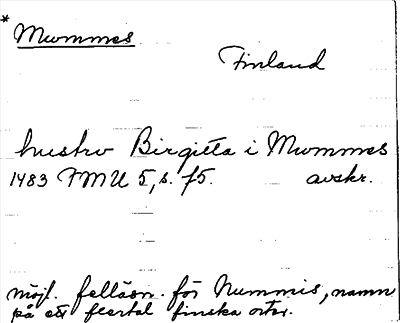 * Mummes
Finland
hustro Birgitta i Mummes
1483 FMU 5, s. 75. avskr.
möjl. felläsn. för Nummis, namn
på ett flertal finska orter.